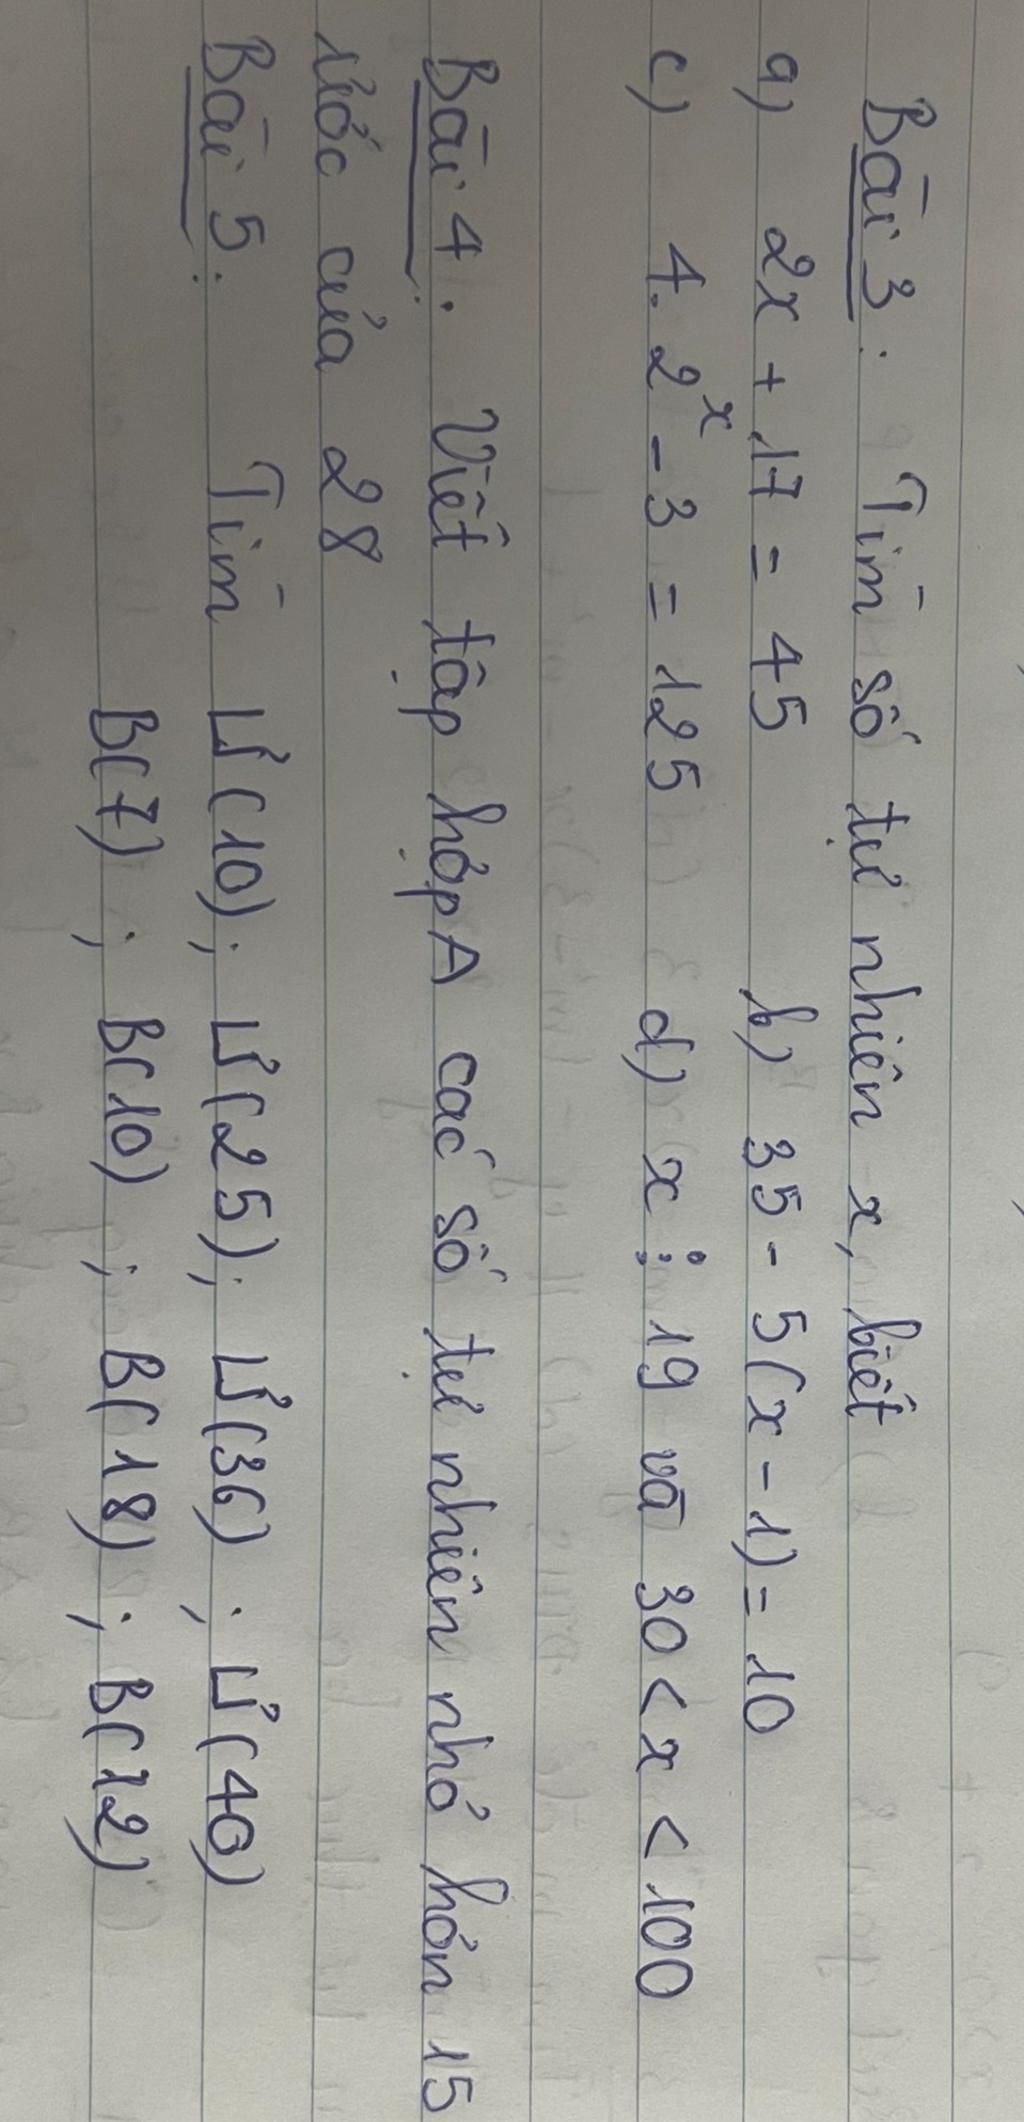 Bài 3: Tìm số tự nhiên x, biết
a) 2x + 17 = 45 b) 35 - 5(x - 1) = 10
c) 4. 2^x - 3 = 125 d) x ⋮ 19 và 30 < x < 100
Bài 4: Viết tập hợp A các số tự nhiên nhỏ hơn 15
ước của 28
Bài 5: Tìm Ư(10); Ư(25); Ư(36); Ư(40)
B(7); B(10); B(18); B(12)